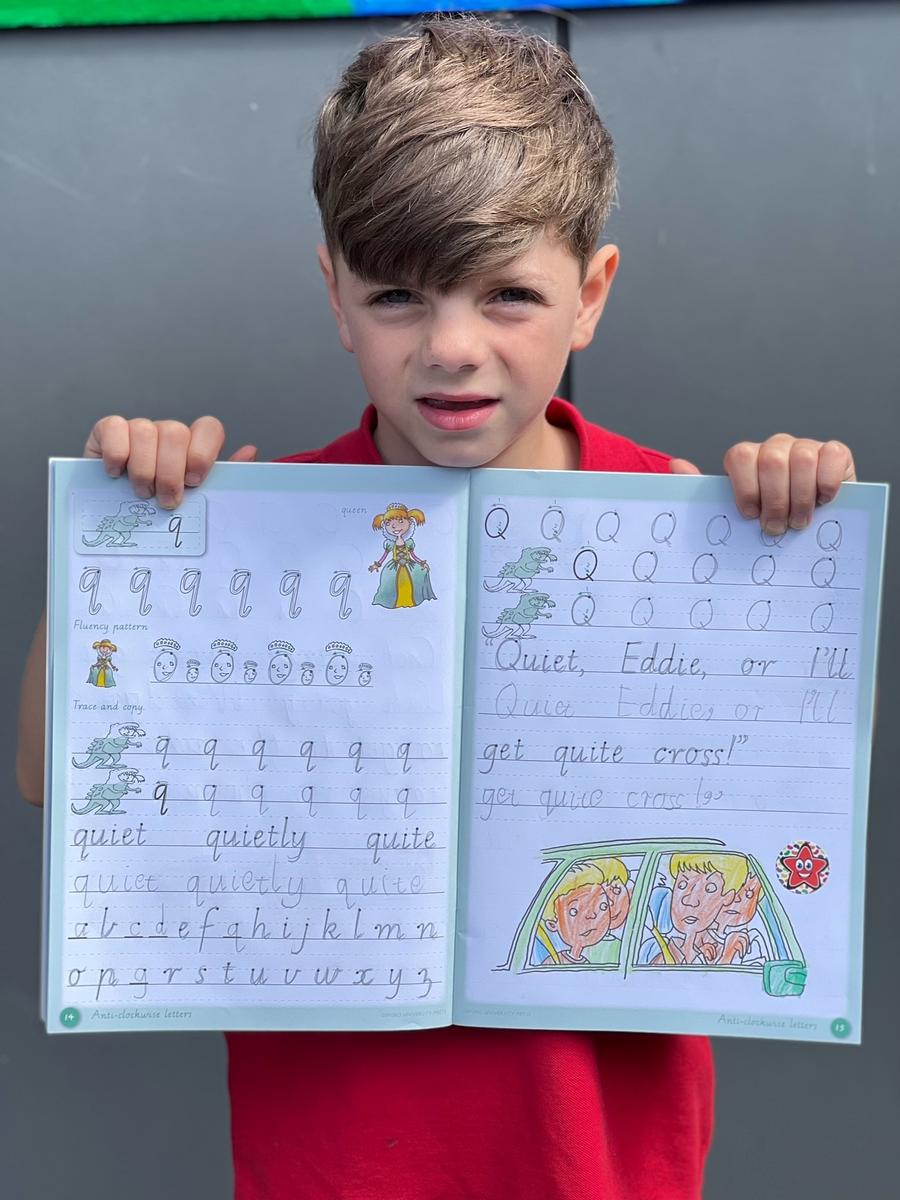 q
queen
q q q q q q
Fluency pattern
Trace and copy.
q q q q q q
q q q q q q
quiet quietly quite
quiet quietly quite
a b c d e f g h i j k l m n
o p q r s t u v w x y z
14 Anti-clockwise letters
OXFORD UNIVERSITY PRESS
Q Q Q Q Q Q Q
Q Q Q Q Q
Q Q Q Q Q
"Quiet, Eddie, or I'll
Quiet Eddie, or I'll
get quite cross!"
get quite cross!"
OXFORD UNIVERSITY PRESS
Anti-clockwise letters 15